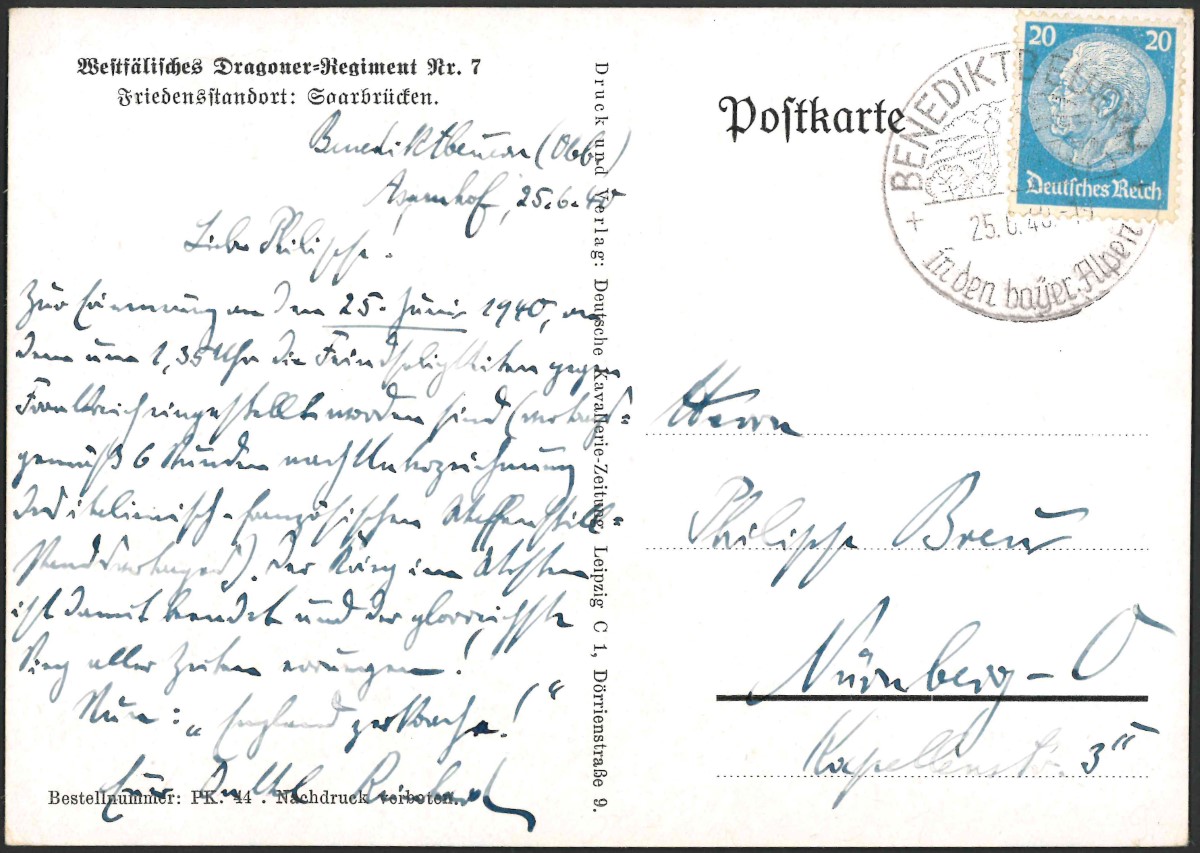 Westfälisches Dragoner-Regiment Nr. 7
Friedensstandort: Saarbrücken.
Benediktbeuern (Obb.)
25.6.40
Liebe Philippe!
Zur Erinnerung an den 25. Juni 1940, an
dem um 1,35 Uhr die Feindseligkeiten gegen
Frankreich eingestellt worden sind (vertrags-
gemäß 6 Stunden nach Unterzeichnung
des italienisch-französischen Waffenstill-
standsvertrages). Der Krieg im Westen
ist damit beendet und der glorreichste
Sieg aller Zeiten errungen!
Nun: „England zerbreche!“
Euer Onkel
Bestellnummer: PK. 44 . Nachdruck verboten.
Druck und Verlag: Deutsche Kavallerie-Zeitung, Leipzig C 1, Dörrienstraße 9.
Postkarte
BENEDIKTBEUERN
25.6.40
in den bayer. Alpen
20 20
Deutsches Reich
Herrn
Philipp Breu
Nürnberg-O
Kapellenstr. 3